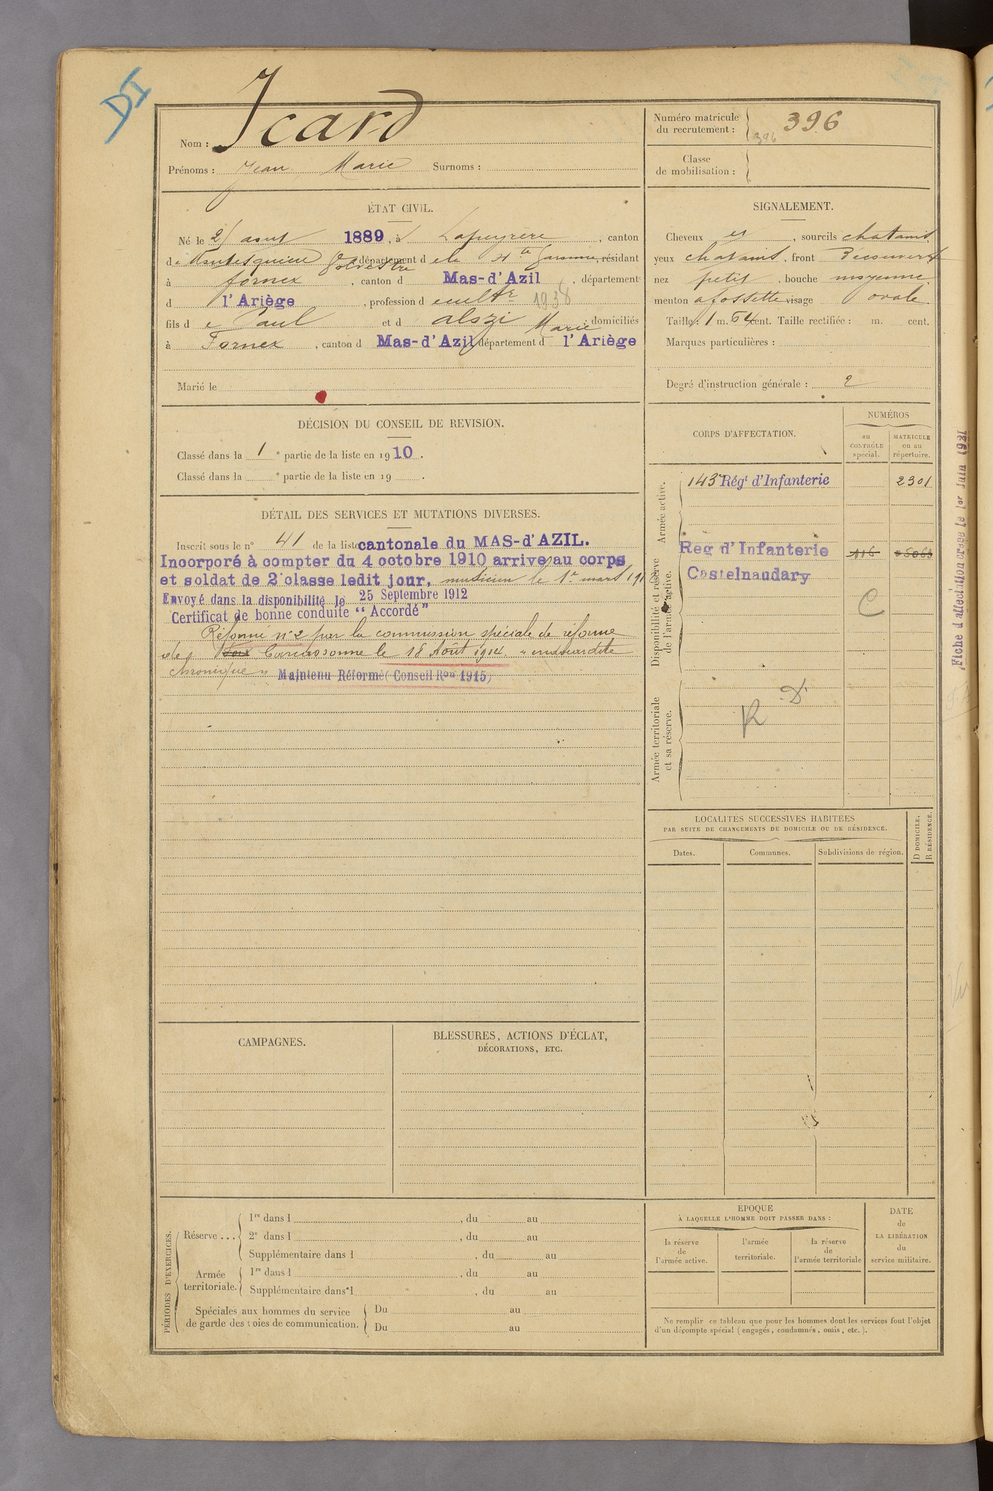 DI
Nom : Icard
Prénoms : Jean Marie Surnoms :
Numéro matricule du recrutement : 396
396
Classe de mobilisation :
ÉTAT CIVIL.
Né le 21 aout 1889, à Lapeyrère, canton
de Montesquieu Volvestre département de la Hte Garonne, résidant
à Fornex, canton d Mas-d'Azil, département
d l'Ariège, profession d cultr 1938
fils de Paul et d Marie domiciliés
à Fornex, canton d Mas-d'Azil département d l'Ariège
Marié le
SIGNALEMENT.
Cheveux et, sourcils chatains
yeux chatains, front Découvert
nez petit, bouche moyenne
menton a fossette visage ovale
Taille : 1 m. 64 cent. Taille rectifiée : m. cent.
Marques particulières :
Degré d'instruction générale : 2
DÉCISION DU CONSEIL DE REVISION.
Classé dans la 1e partie de la liste en 1910.
Classé dans la e partie de la liste en 19 .
DÉTAIL DES SERVICES ET MUTATIONS DIVERSES.
Inscrit sous le n° 41 de la liste cantonale du MAS-d'AZIL.
Incorporé à compter du 4 octobre 1910 arrivé au corps
et soldat de 2e classe ledit jour, musicien le 1er mars 191
Envoyé dans la disponibilité le 25 Septembre 1912
Certificat de bonne conduite "Accordé"
Réformé n°2 par la commission spéciale de réforme
de Carcassonne le 18 Août 1914.
chronique " Maintenu Réformé (Conseil Ron 1915)
CORPS D'AFFECTATION.
NUMÉROS
au CONTRÔLE spécial.
MATRICULE ou au répertoire.
Armée active.
143e Régt d'Infanterie 2301
Disponibilité et réserve de l'armée active.
Reg d'Infanterie
Castelnaudary
C
Armée territoriale et sa réserve.
R D
Fiche d'affectation créée le 1er Juin 1931
LOCALITÉS SUCCESSIVES HABITÉES
PAR SUITE DE CHANGEMENTS DE DOMICILE OU DE RÉSIDENCE.
Dates. Communes. Subdivisions de région.
D DOMICILE.
R RÉSIDENCE.
CAMPAGNES.
BLESSURES, ACTIONS D'ÉCLAT,
DÉCORATIONS, ETC.
PÉRIODES D'EXERCICES.
Réserve...
1re dans l , du au
2e dans l , du au
Supplémentaire dans l , du au
Armée territoriale.
1re dans l , du au
Supplémentaire dans l , du au
Spéciales aux hommes du service
de garde des voies de communication.
Du au
Du au
ÉPOQUE
À LAQUELLE L'HOMME DOIT PASSER DANS :
la réserve de l'armée active.
l'armée territoriale.
la réserve de l'armée territoriale
DATE de LA LIBÉRATION du service militaire.
Ne remplir ce tableau que pour les hommes dont les services font l'objet
d'un décompte spécial (engagés, condamnés, omis, etc.).